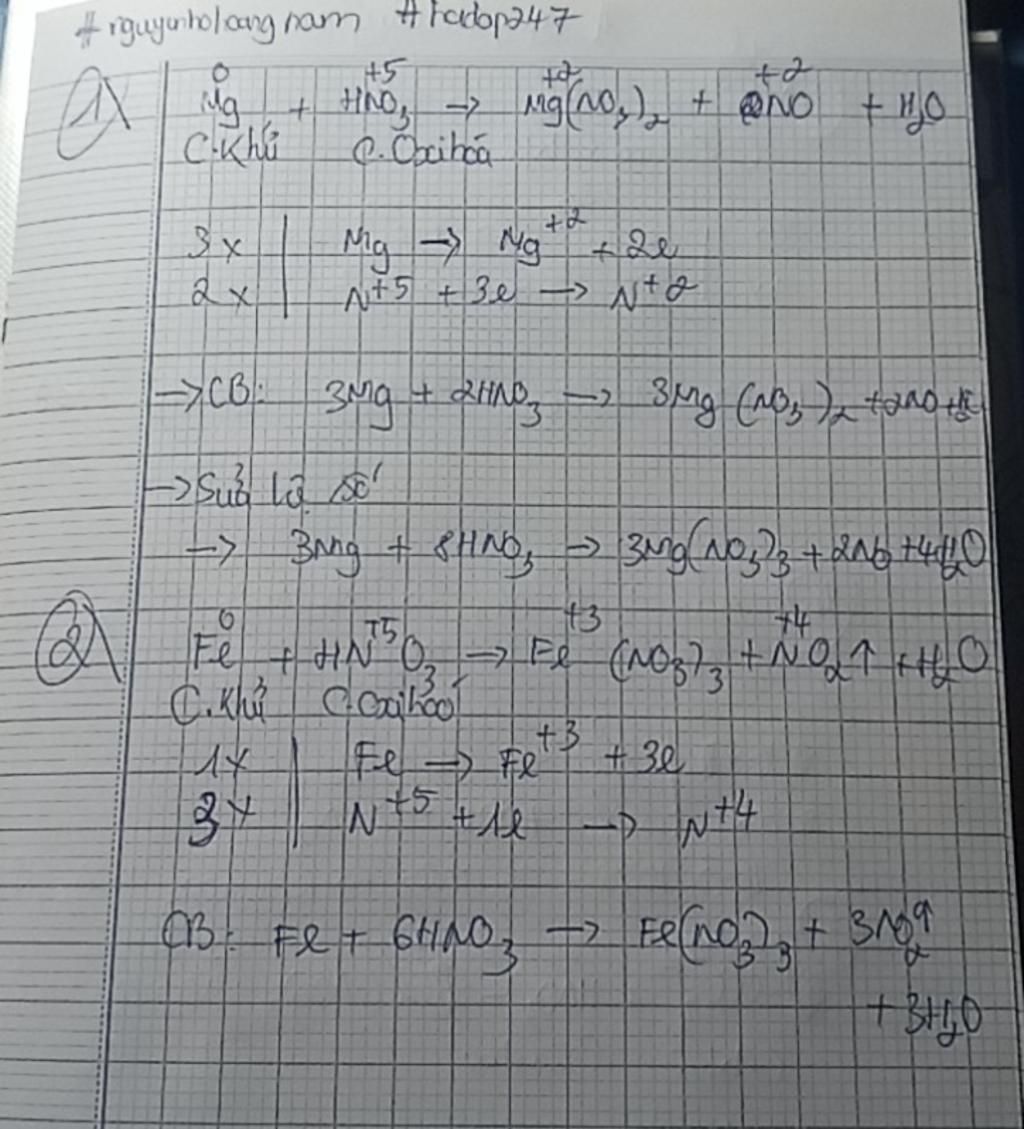 #nguyunholangnam #hadop247
1) Mg⁰ + HN⁺⁵O₃ → Mg⁺²(NO₃)₂ + N⁺²O + H₂O
C.Khử C.Oxi hoá
3x | Mg → Mg⁺² + 2e
2x | N⁺⁵ + 3e → N⁺²
→ CB: 3Mg + 2HNO₃ → 3Mg(NO₃)₂ + 2NO +
→ Sửa lại số
→ 3Mg + 8HNO₃ → 3Mg(NO₃)₃ + 2NO + 4H₂O
2) Fe⁰ + HN⁺⁵O₃ → Fe⁺³(NO₃)₃ + N⁺⁴O₂↑ + H₂O
C.Khử C.Oxi hoá
1x | Fe → Fe⁺³ + 3e
3x | N⁺⁵ + 1e → N⁺⁴
CB: Fe + 6HNO₃ → Fe(NO₃)₃ + 3NO₂↑
+ 3H₂O